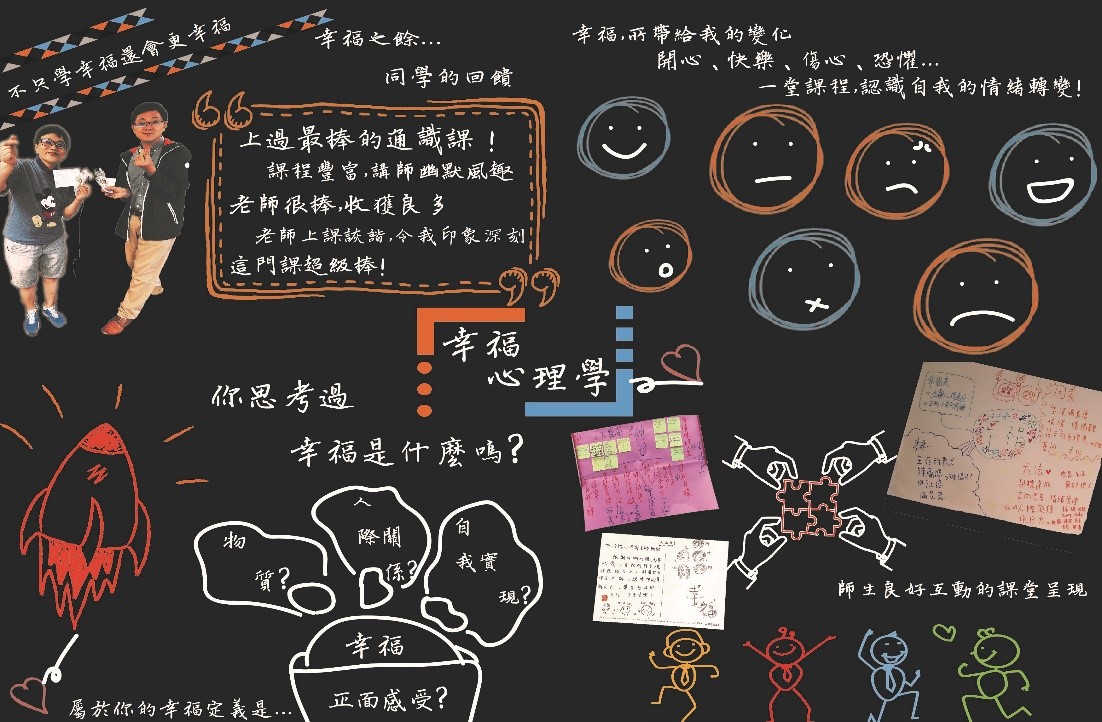 不只學幸福還會更幸福
幸福之餘…
同學的回饋
上過最棒的通識課！
課程豐富,講師幽默風趣
老師很棒,收獲良多
老師上課詼諧,令我印象深刻
這門課超級棒！
幸福,所帶給我的變化
開心、快樂、傷心、恐懼…
一堂課程,認識自我的情緒轉變！
幸福
心理學
你思考過
幸福是什麼嗎？
物
質？
人
際關
係？
自
我實
現？
幸福
正面感受？
屬於你的幸福定義是…
師生良好互動的課堂呈現